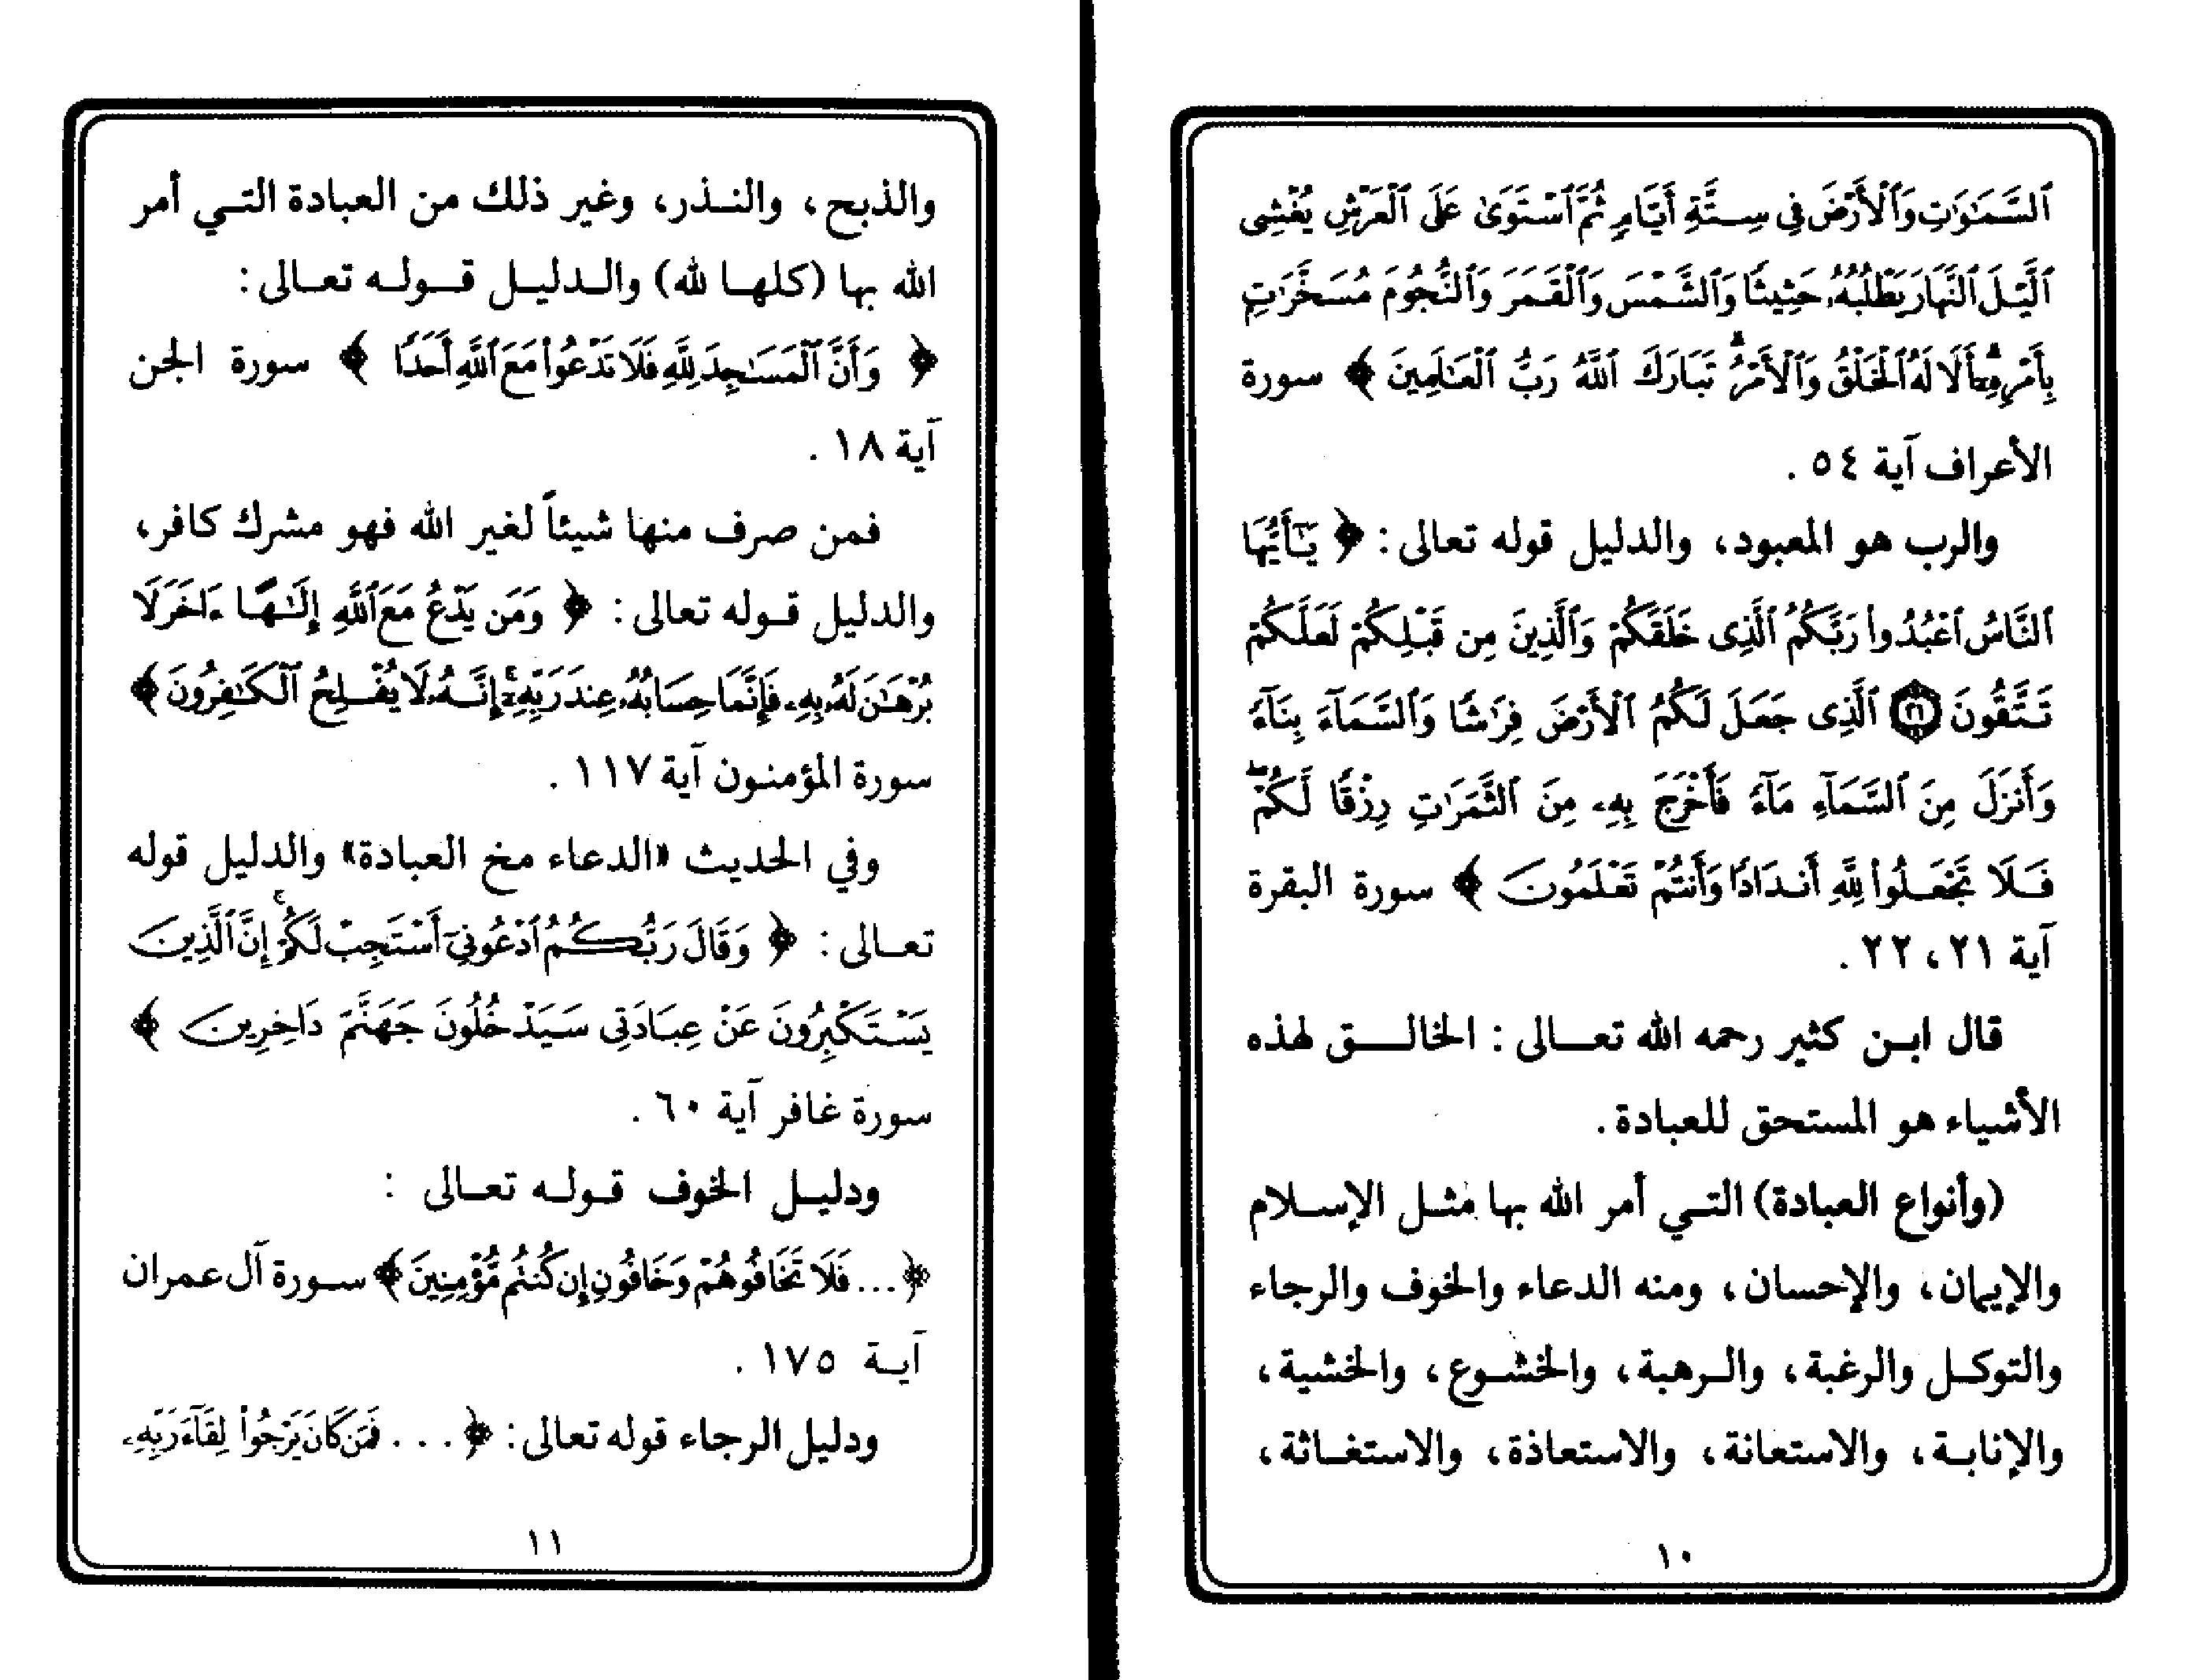 ٱلسَّمَٰوَٰتِ وَٱلْأَرْضَ فِى سِتَّةِ أَيَّامٍ ثُمَّ ٱسْتَوَىٰ عَلَى ٱلْعَرْشِ يُغْشِى
ٱلَّيْلَ ٱلنَّهَارَ يَطْلُبُهُۥ حَثِيثًا وَٱلشَّمْسَ وَٱلْقَمَرَ وَٱلنُّجُومَ مُسَخَّرَٰتٍ
بِأَمْرِهِۦٓ ۗ أَلَا لَهُ ٱلْخَلْقُ وَٱلْأَمْرُ ۗ تَبَارَكَ ٱللَّهُ رَبُّ ٱلْعَٰلَمِينَ ﴾ سورة
الأعراف آية ٥٤ .
والرب هو المعبود، والدليل قوله تعالى: ﴿ يَٰٓأَيُّهَا
ٱلنَّاسُ ٱعْبُدُوا۟ رَبَّكُمُ ٱلَّذِى خَلَقَكُمْ وَٱلَّذِينَ مِن قَبْلِكُمْ لَعَلَّكُمْ
تَتَّقُونَ ٢١ ٱلَّذِى جَعَلَ لَكُمُ ٱلْأَرْضَ فِرَٰشًا وَٱلسَّمَآءَ بِنَآءً
وَأَنزَلَ مِنَ ٱلسَّمَآءِ مَآءً فَأَخْرَجَ بِهِۦ مِنَ ٱلثَّمَرَٰتِ رِزْقًا لَّكُمْ ۖ
فَلَا تَجْعَلُوا۟ لِلَّهِ أَندَادًا وَأَنتُمْ تَعْلَمُونَ ﴾ سورة البقرة
آية ٢١، ٢٢ .
قال ابن كثير رحمه الله تعالى: الخالق لهذه
الأشياء هو المستحق للعبادة.
(وأنواع العبادة) التي أمر الله بها مثل الإسلام
والإيمان، والإحسان، ومنه الدعاء والخوف والرجاء
والتوكل والرغبة، والرهبة، والخشوع، والخشية،
والإنابة، والاستعانة، والاستعاذة، والاستغاثة،
١٠
والذبح، والنذر، وغير ذلك من العبادة التي أمر
الله بها (كلها لله) والدليل قوله تعالى:
﴿ وَأَنَّ ٱلْمَسَٰجِدَ لِلَّهِ فَلَا تَدْعُوا۟ مَعَ ٱللَّهِ أَحَدًا ﴾ سورة الجن
آية ١٨ .
فمن صرف منها شيئاً لغير الله فهو مشرك كافر،
والدليل قوله تعالى: ﴿ وَمَن يَدْعُ مَعَ ٱللَّهِ إِلَٰهًا ءَاخَرَ لَا
بُرْهَٰنَ لَهُۥ بِهِۦ فَإِنَّمَا حِسَابُهُۥ عِندَ رَبِّهِۦٓ ۚ إِنَّهُۥ لَا يُفْلِحُ ٱلْكَٰفِرُونَ ﴾
سورة المؤمنون آية ١١٧ .
وفي الحديث «الدعاء مخ العبادة» والدليل قوله
تعالى: ﴿ وَقَالَ رَبُّكُمُ ٱدْعُونِىٓ أَسْتَجِبْ لَكُمْ ۚ إِنَّ ٱلَّذِينَ
يَسْتَكْبِرُونَ عَنْ عِبَادَتِى سَيَدْخُلُونَ جَهَنَّمَ دَاخِرِينَ ﴾
سورة غافر آية ٦٠ .
ودليل الخوف قوله تعالى :
﴿... فَلَا تَخَافُوهُمْ وَخَافُونِ إِن كُنتُم مُّؤْمِنِينَ ﴾ سورة آل عمران
آية ١٧٥ .
ودليل الرجاء قوله تعالى: ﴿ ... فَمَن كَانَ يَرْجُوا۟ لِقَآءَ رَبِّهِۦ
١١